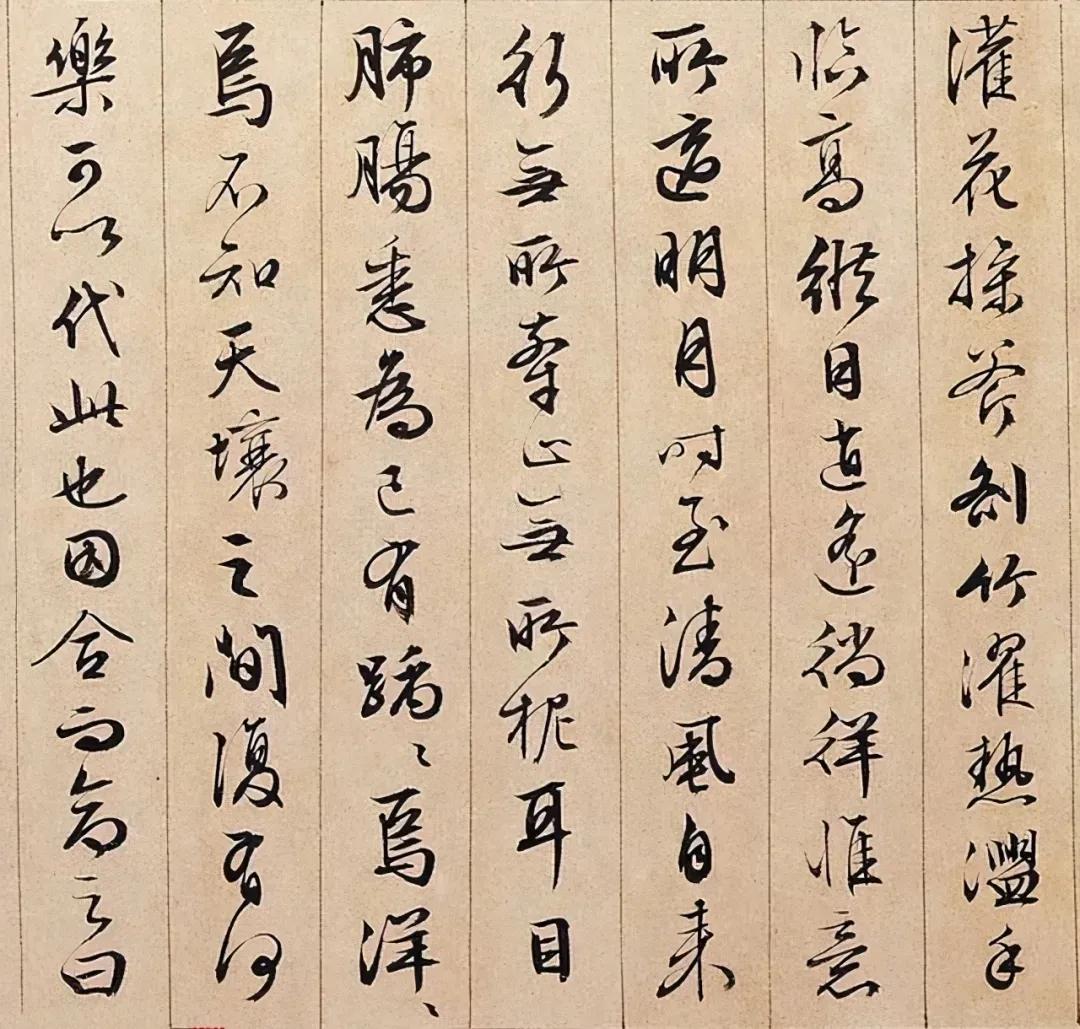 灌花操斧剖竹濯熱盥手
臨高縱目逍遙徜徉惟意
所適明月時至清風自来
行無所牽止無所柅耳目
肺腸悉為己有踽〻焉洋〻
焉不知天壤之間復有何
樂可以代此也因合而命之曰